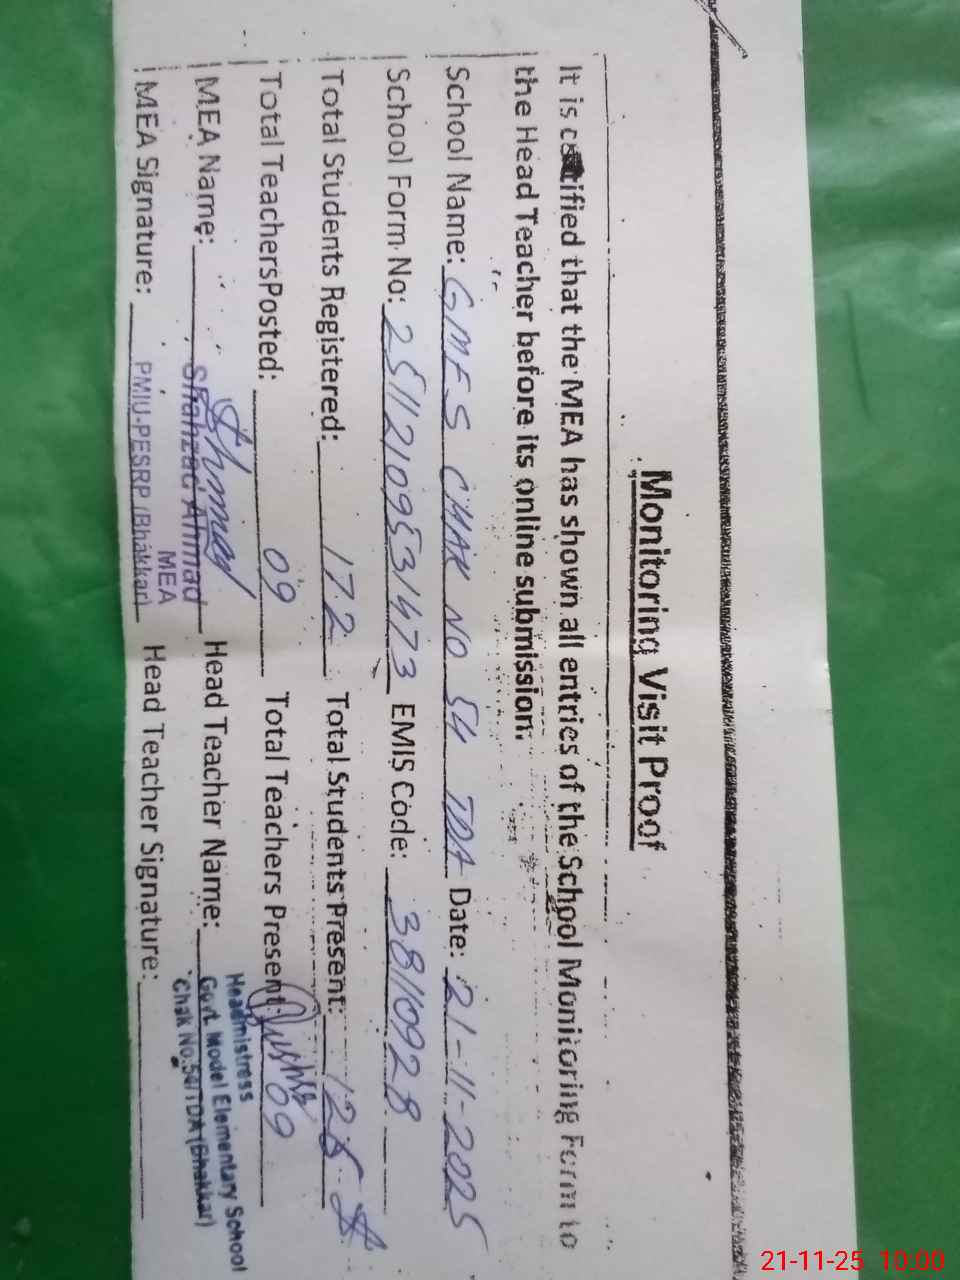 Monitoring Visit Proof
It is certified that the MEA has shown all entries of the School Monitoring Form to
the Head Teacher before its online submission.
School Name: GMES CHAK NO 54 TDA Date: 21-11-2025
School Form No: 25112109531473 EMIS Code: 38110928
Total Students Registered: 172 Total Students Present: 128
Total Teachers Posted: 09 Total Teachers Present: 09
MEA Name: Shahzad Ahmad Head Teacher Name:
MEA
MEA Signature: PMIU-PESRP (Bhakkar) Head Teacher Signature:
Headmistress
Govt. Model Elementary School
Chak No.54/TDA (Bhakkar)
21-11-25 10:00